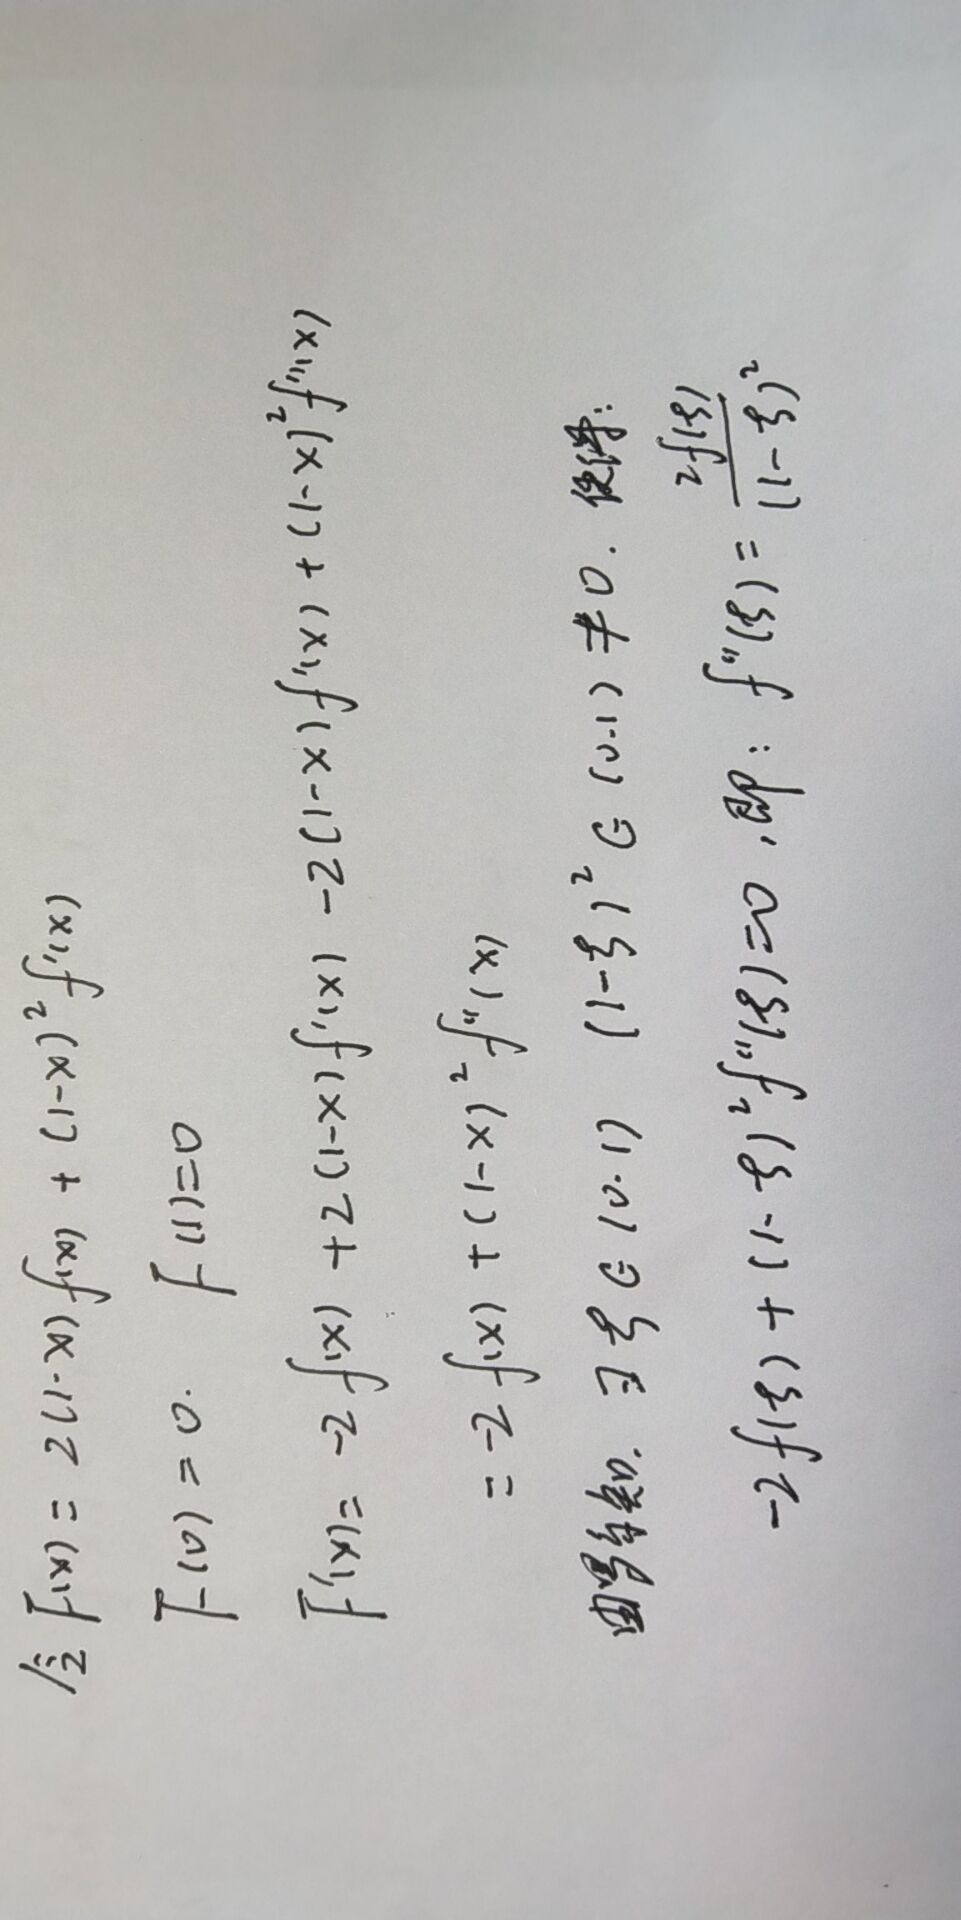 令 F(x) = 2(1-x)f(x) + (1-x)²f'(x)
F(0) = 0. F(1)=0
F'(x)= -2f(x) +2(1-x)f'(x) -2(1-x)f'(x) + (1-x)²f''(x)
= -2f(x) + (1-x)²f''(x)
由罗尔定理. ∃ξ∈(0.1) (1-ξ)²∈(0.1) ≠0. 使得:
-2f(ξ) + (1-ξ)²f''(ξ)=0, 即: f''(ξ) = 2f(ξ)/(1-ξ)²